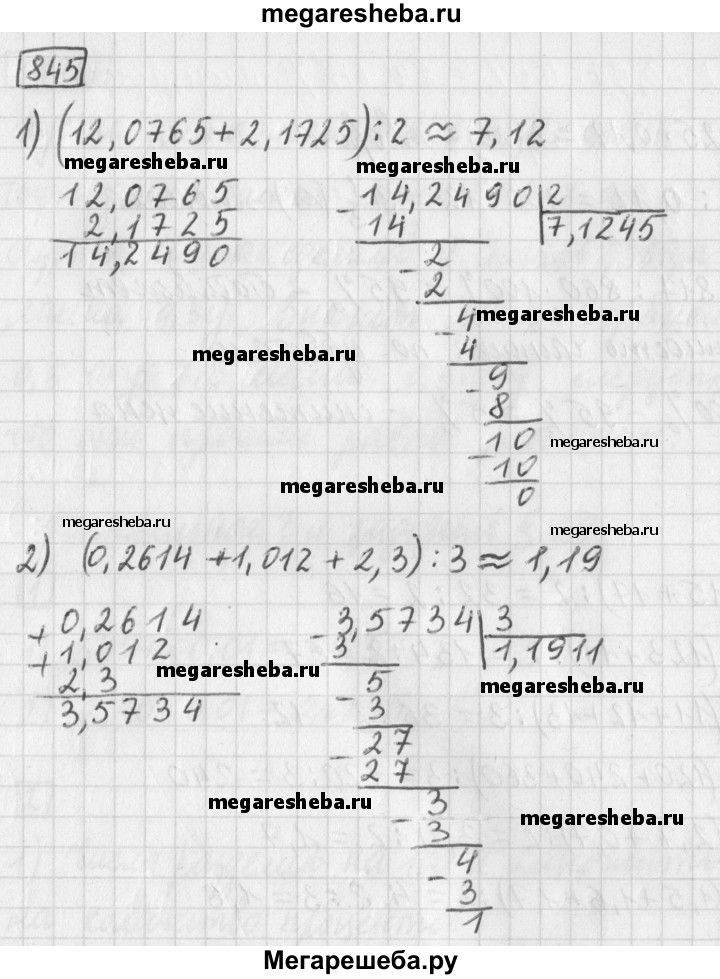 megaresheba.ru
845
1) (12,0765+2,1725):2 ≈ 7,12
megaresheba.ru megaresheba.ru
12,0765
2,1725
14,2490
- 14,2490 2
14 7,1245
- 2
2
4 megaresheba.ru
- 4
megaresheba.ru
- 9
8
10 megaresheba.ru
- 10
megaresheba.ru
0
megaresheba.ru megaresheba.ru
2) (0,2614+1,012+2,3):3≈1,19
+ 0,2614
+ 1,012
2,3
3,5734
megaresheba.ru
- 3,5734 3
3 1,1911
megaresheba.ru
- 5
3
- 27
27
megaresheba.ru
- 3
3
megaresheba.ru
- 4
3
1
Мегарешеба.ру